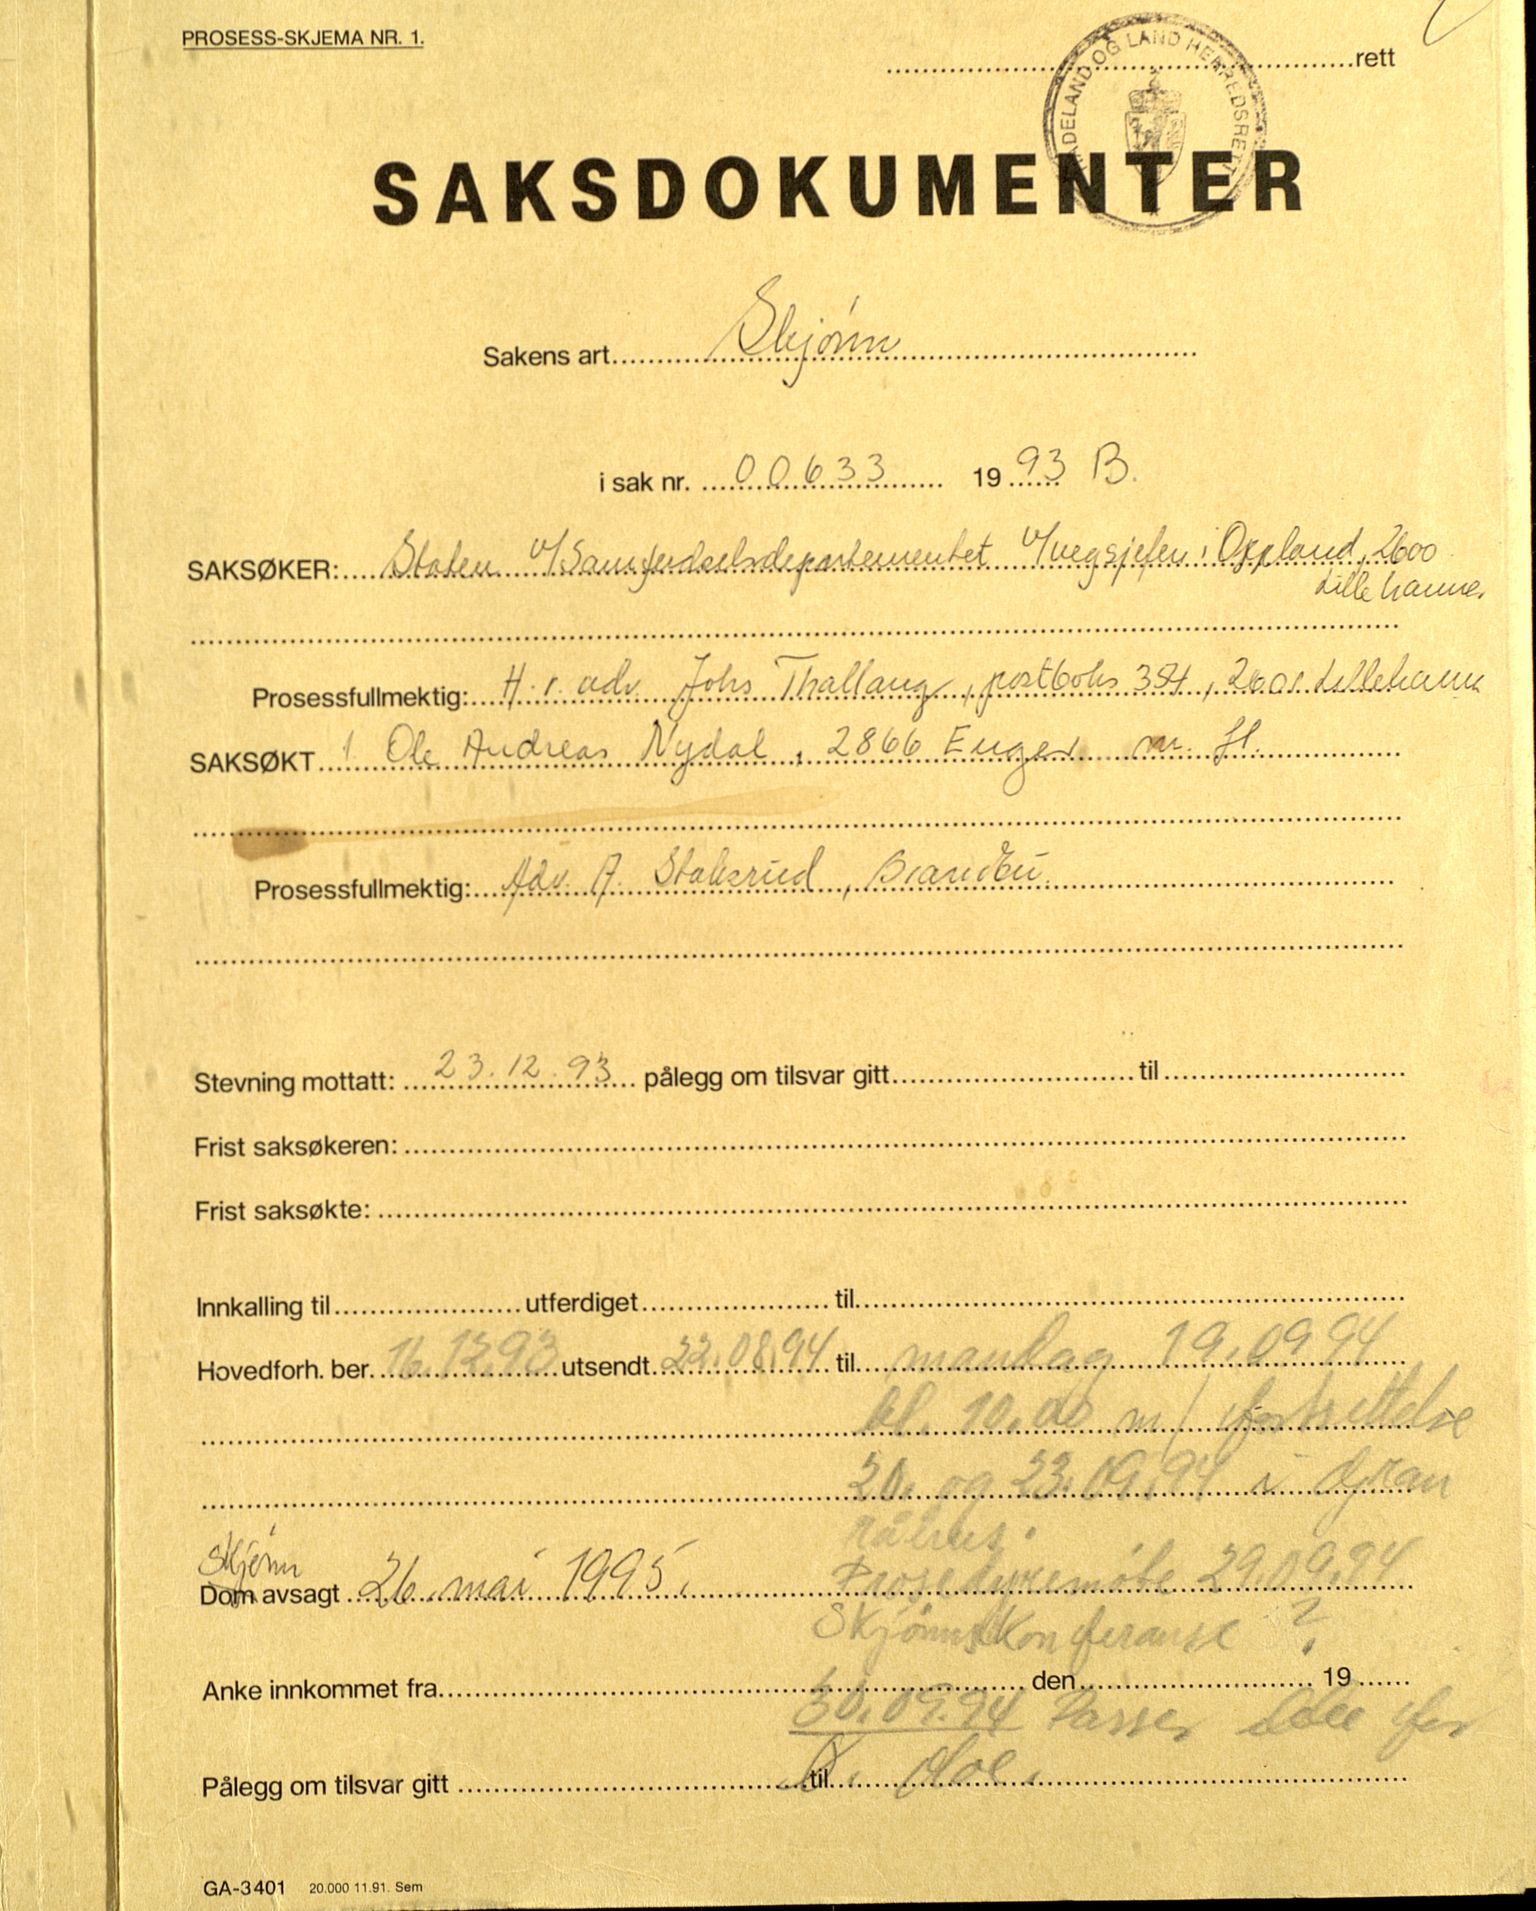 PROSESS-SKJEMA NR. 1.
....rett
HADELAND OG LAND HERREDSRETT
SAKSDOKUMENTER
Sakens art Skjønn
i sak nr. 00633 1993 B.
SAKSØKER: Staten v/Samferdselsdepartementet v/vegsjefen i Oppland, 2600
Lillehammer
Prosessfullmektig: H.r.adv Johs Thallaug, postboks 384, 2601 Lillehammer
SAKSØKT 1 Ole Andreas Nydal, 2866 Enger m. fl.
Prosessfullmektig: Adv. A. Staksrud, Brandbu
Stevning mottatt: 23.12.93 pålegg om tilsvar gitt til
Frist saksøkeren:
Frist saksøkte:
Innkalling til utferdiget til
Hovedforh. ber. 16.12.93 utsendt 22.08.94 til mandag 19.09.94
kl. 10.00 m/ fortsettelse
20. og 23.09.94 i Gran
rådhus.
Skjønn
Dom avsagt 26. mai 1995. Prosedyremøte 29.09.94
Skjønnskonferanse ?
Anke innkommet fra den 19
30.09.94 Passer ikke for
Pålegg om tilsvar gitt til
GA-3401 20.000 11.91. Sem